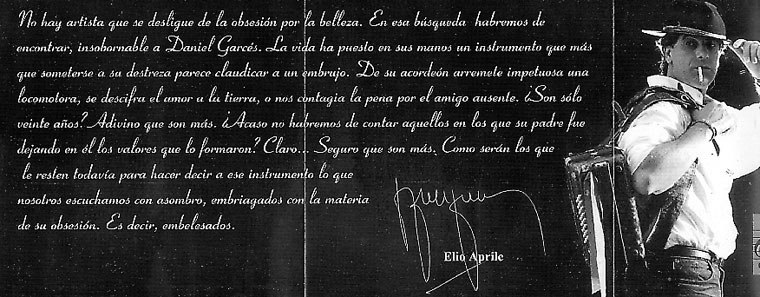 No hay artista que se desligue de la obsesión por la belleza. En esa búsqueda habremos de
encontrar, insobornable a Daniel Garcés. La vida ha puesto en sus manos un instrumento que más
que someterse a su destreza parece claudicar a un embrujo. De su acordeón arremete impetuosa una
locomotora, se descifra el amor a la tierra, o nos contagia la pena por el amigo ausente. ¿Son sólo
veinte años? Adivino que son más. ¿Acaso no habremos de contar aquellos en los que su padre fue
dejando en él los valores que lo formaron? Claro... Seguro que son más. Como serán los que
le resten todavía para hacer decir a ese instrumento lo que
nosotros escuchamos con asombro, embriagados con la materia
de su obsesión. Es decir, embelesados.
Elio Aprile